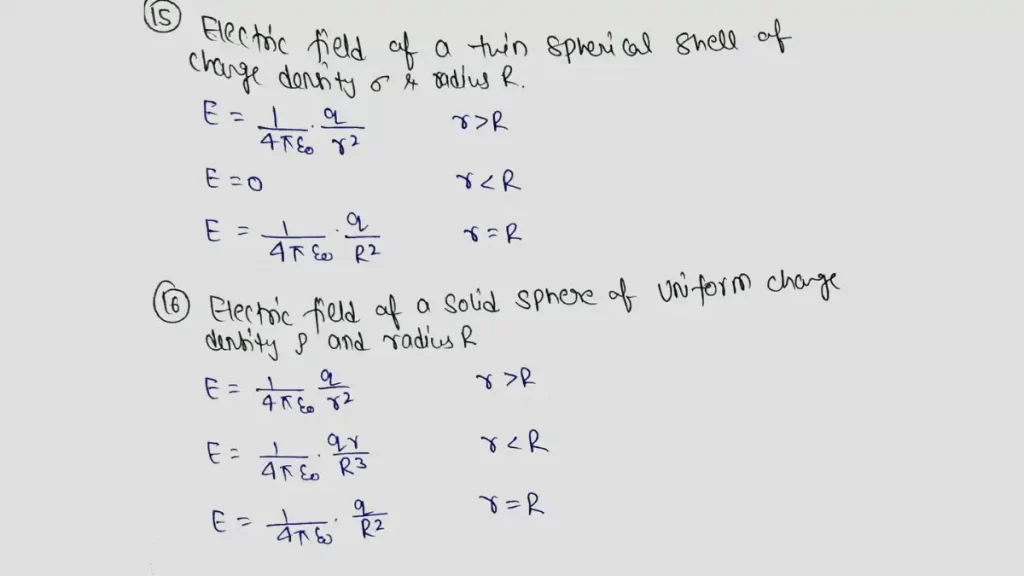 (15) Electric field of a thin spherical shell of
charge density σ & radius R.
E = 1/4πε₀ · q/r² r>R
E = 0 r<R
E = 1/4πε₀ · q/R² r=R
(16) Electric field of a solid sphere of uniform charge
density ρ and radius R
E = 1/4πε₀ q/r² r>R
E = 1/4πε₀ · qr/R³ r<R
E = 1/4πε₀ · q/R² r=R